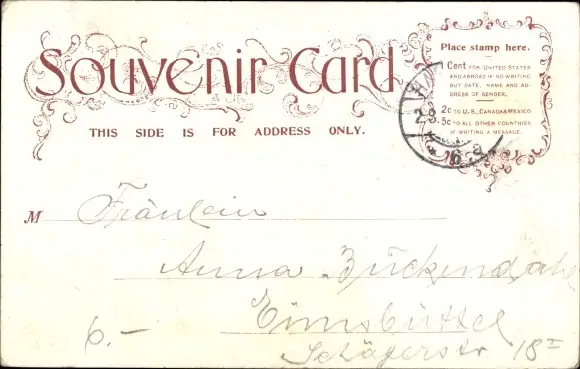 Souvenir Card
THIS SIDE IS FOR ADDRESS ONLY.
Place stamp here.
1 Cent FOR UNITED STATES
AND ABROAD IF NO WRITING
BUT DATE, NAME AND AD-
DRESS OF SENDER.
2c TO U.S., CANADA & MEXICO
5c TO ALL OTHER COUNTRIES
IF WRITING A MESSAGE.
M Fräulein
Anna Bückendahl
Eimsbüttel
6.- 18 I